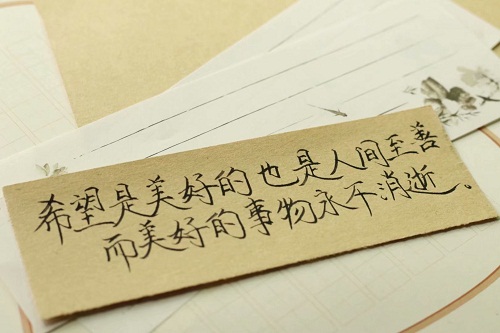 希望是美好的也是人间至善
而美好的事物永不消逝。